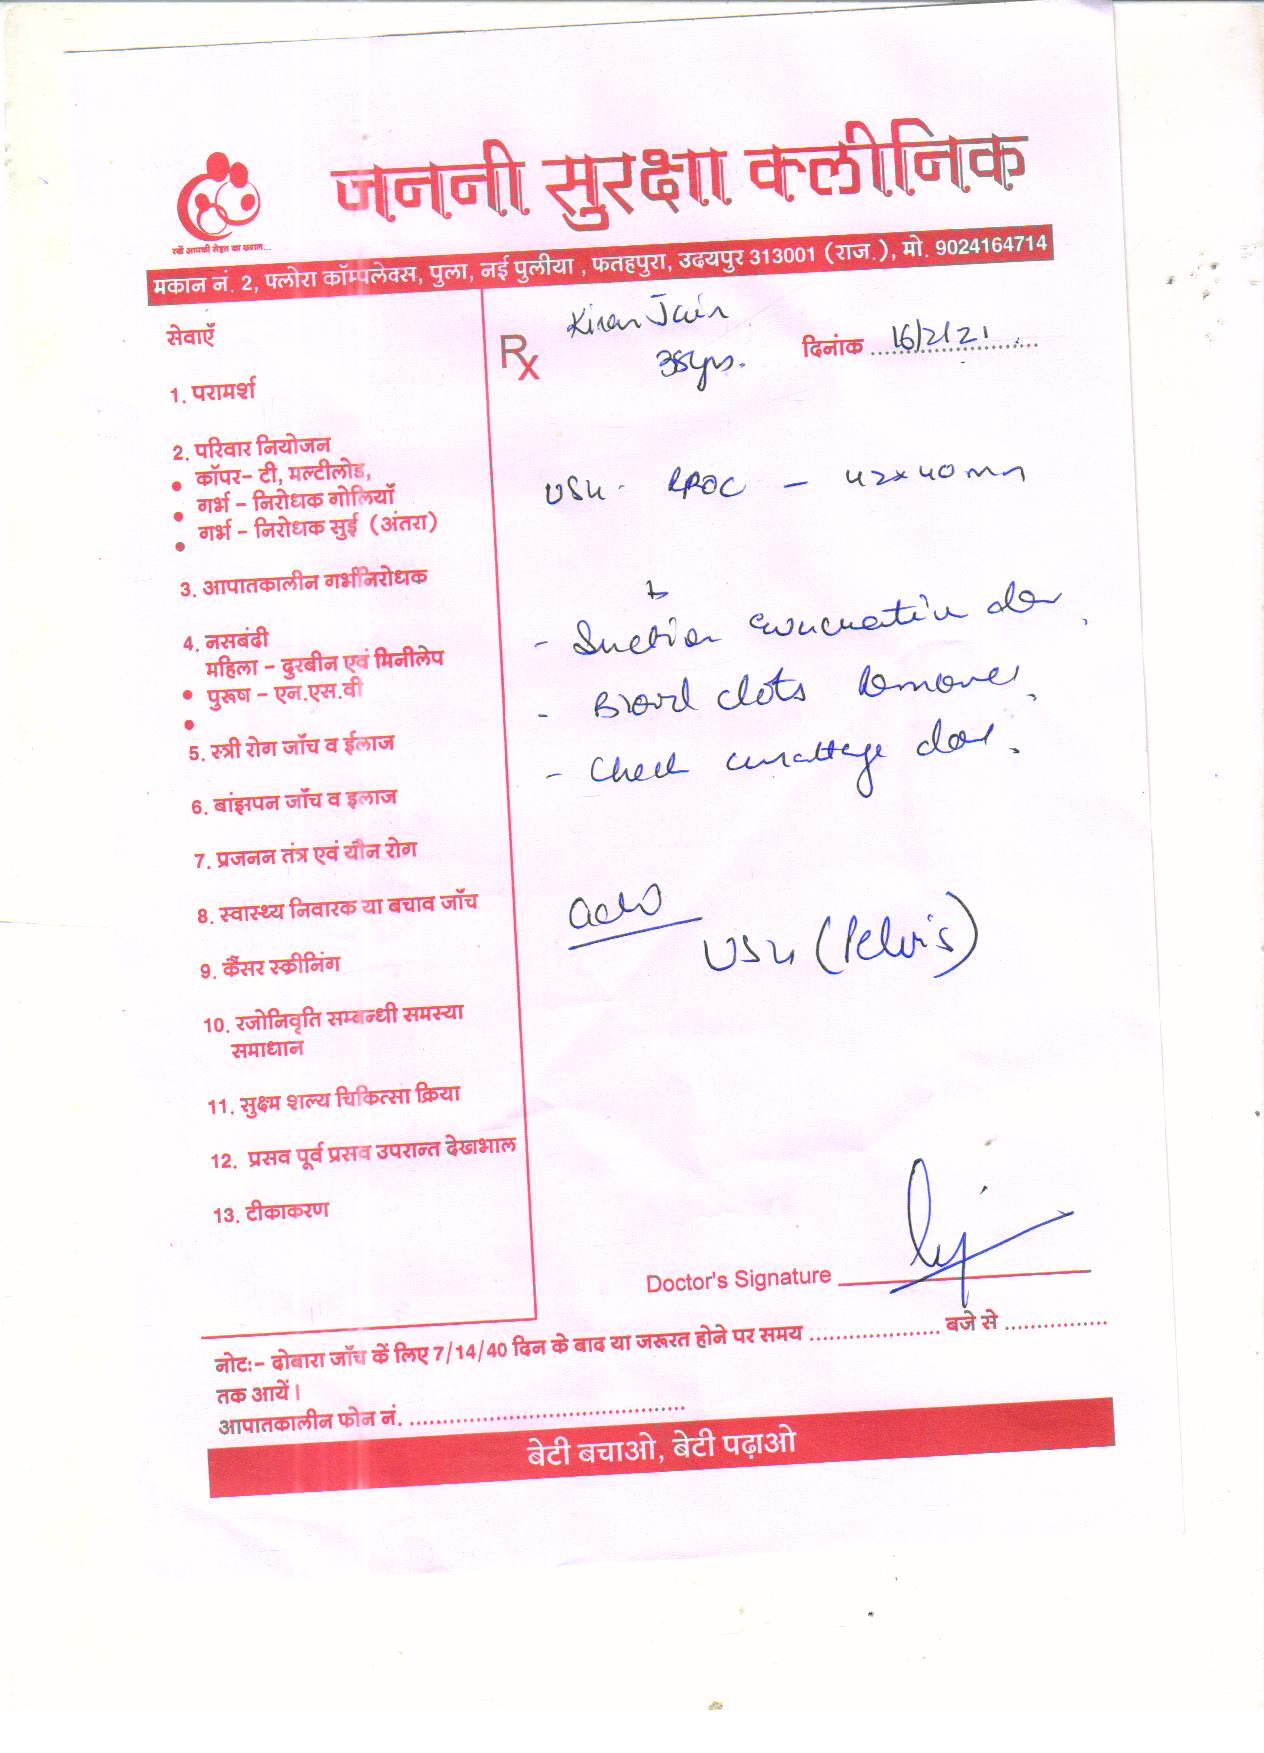 जननी सुरक्षा क्लीनिक
रखें आपकी सेहत का ख्याल...
मकान नं. 2, फ्लोरा कॉम्पलेक्स, पुला, नई पुलीया , फतहपुरा, उदयपुर 313001 (राज.), मो. 9024164714
Kiran Jain
Rx
38yrs.
दिनांक 16/2/21
सेवाएँ
1. परामर्श
2. परिवार नियोजन
• कॉपर– टी, मल्टीलोड,
• गर्भ – निरोधक गोलियाँ
• गर्भ – निरोधक सुई (अंतरा)
3. आपातकालीन गर्भनिरोधक
4. नसबंदी
महिला – दुरबीन एवं मिनीलेप
• पुरूष – एन.एस.वी
•
5. स्त्री रोग जाँच व ईलाज
6. बांझपन जाँच व इलाज
7. प्रजनन तंत्र एवं यौन रोग
8. स्वास्थ्य निवारक या बचाव जाँच
9. कैंसर स्क्रीनिंग
10. रजोनिवृति सम्बन्धी समस्या
समाधान
11. सुक्ष्म शल्य चिकित्सा क्रिया
12. प्रसव पूर्व प्रसव उपरान्त देखभाल
13. टीकाकरण
USG - RPOC – 42x40mm
- Suction evacuation done
- Blood clots removed
- Check curattage done.
Adv
USG (Pelvis)
Doctor's Signature
नोटः– दोबारा जाँच कें लिए 7/14/40 दिन के बाद या जरूरत होने पर समय .................... बजे से ................
तक आयें।
आपातकालीन फोन नं. ..........................................
बेटी बचाओ, बेटी पढ़ाओ